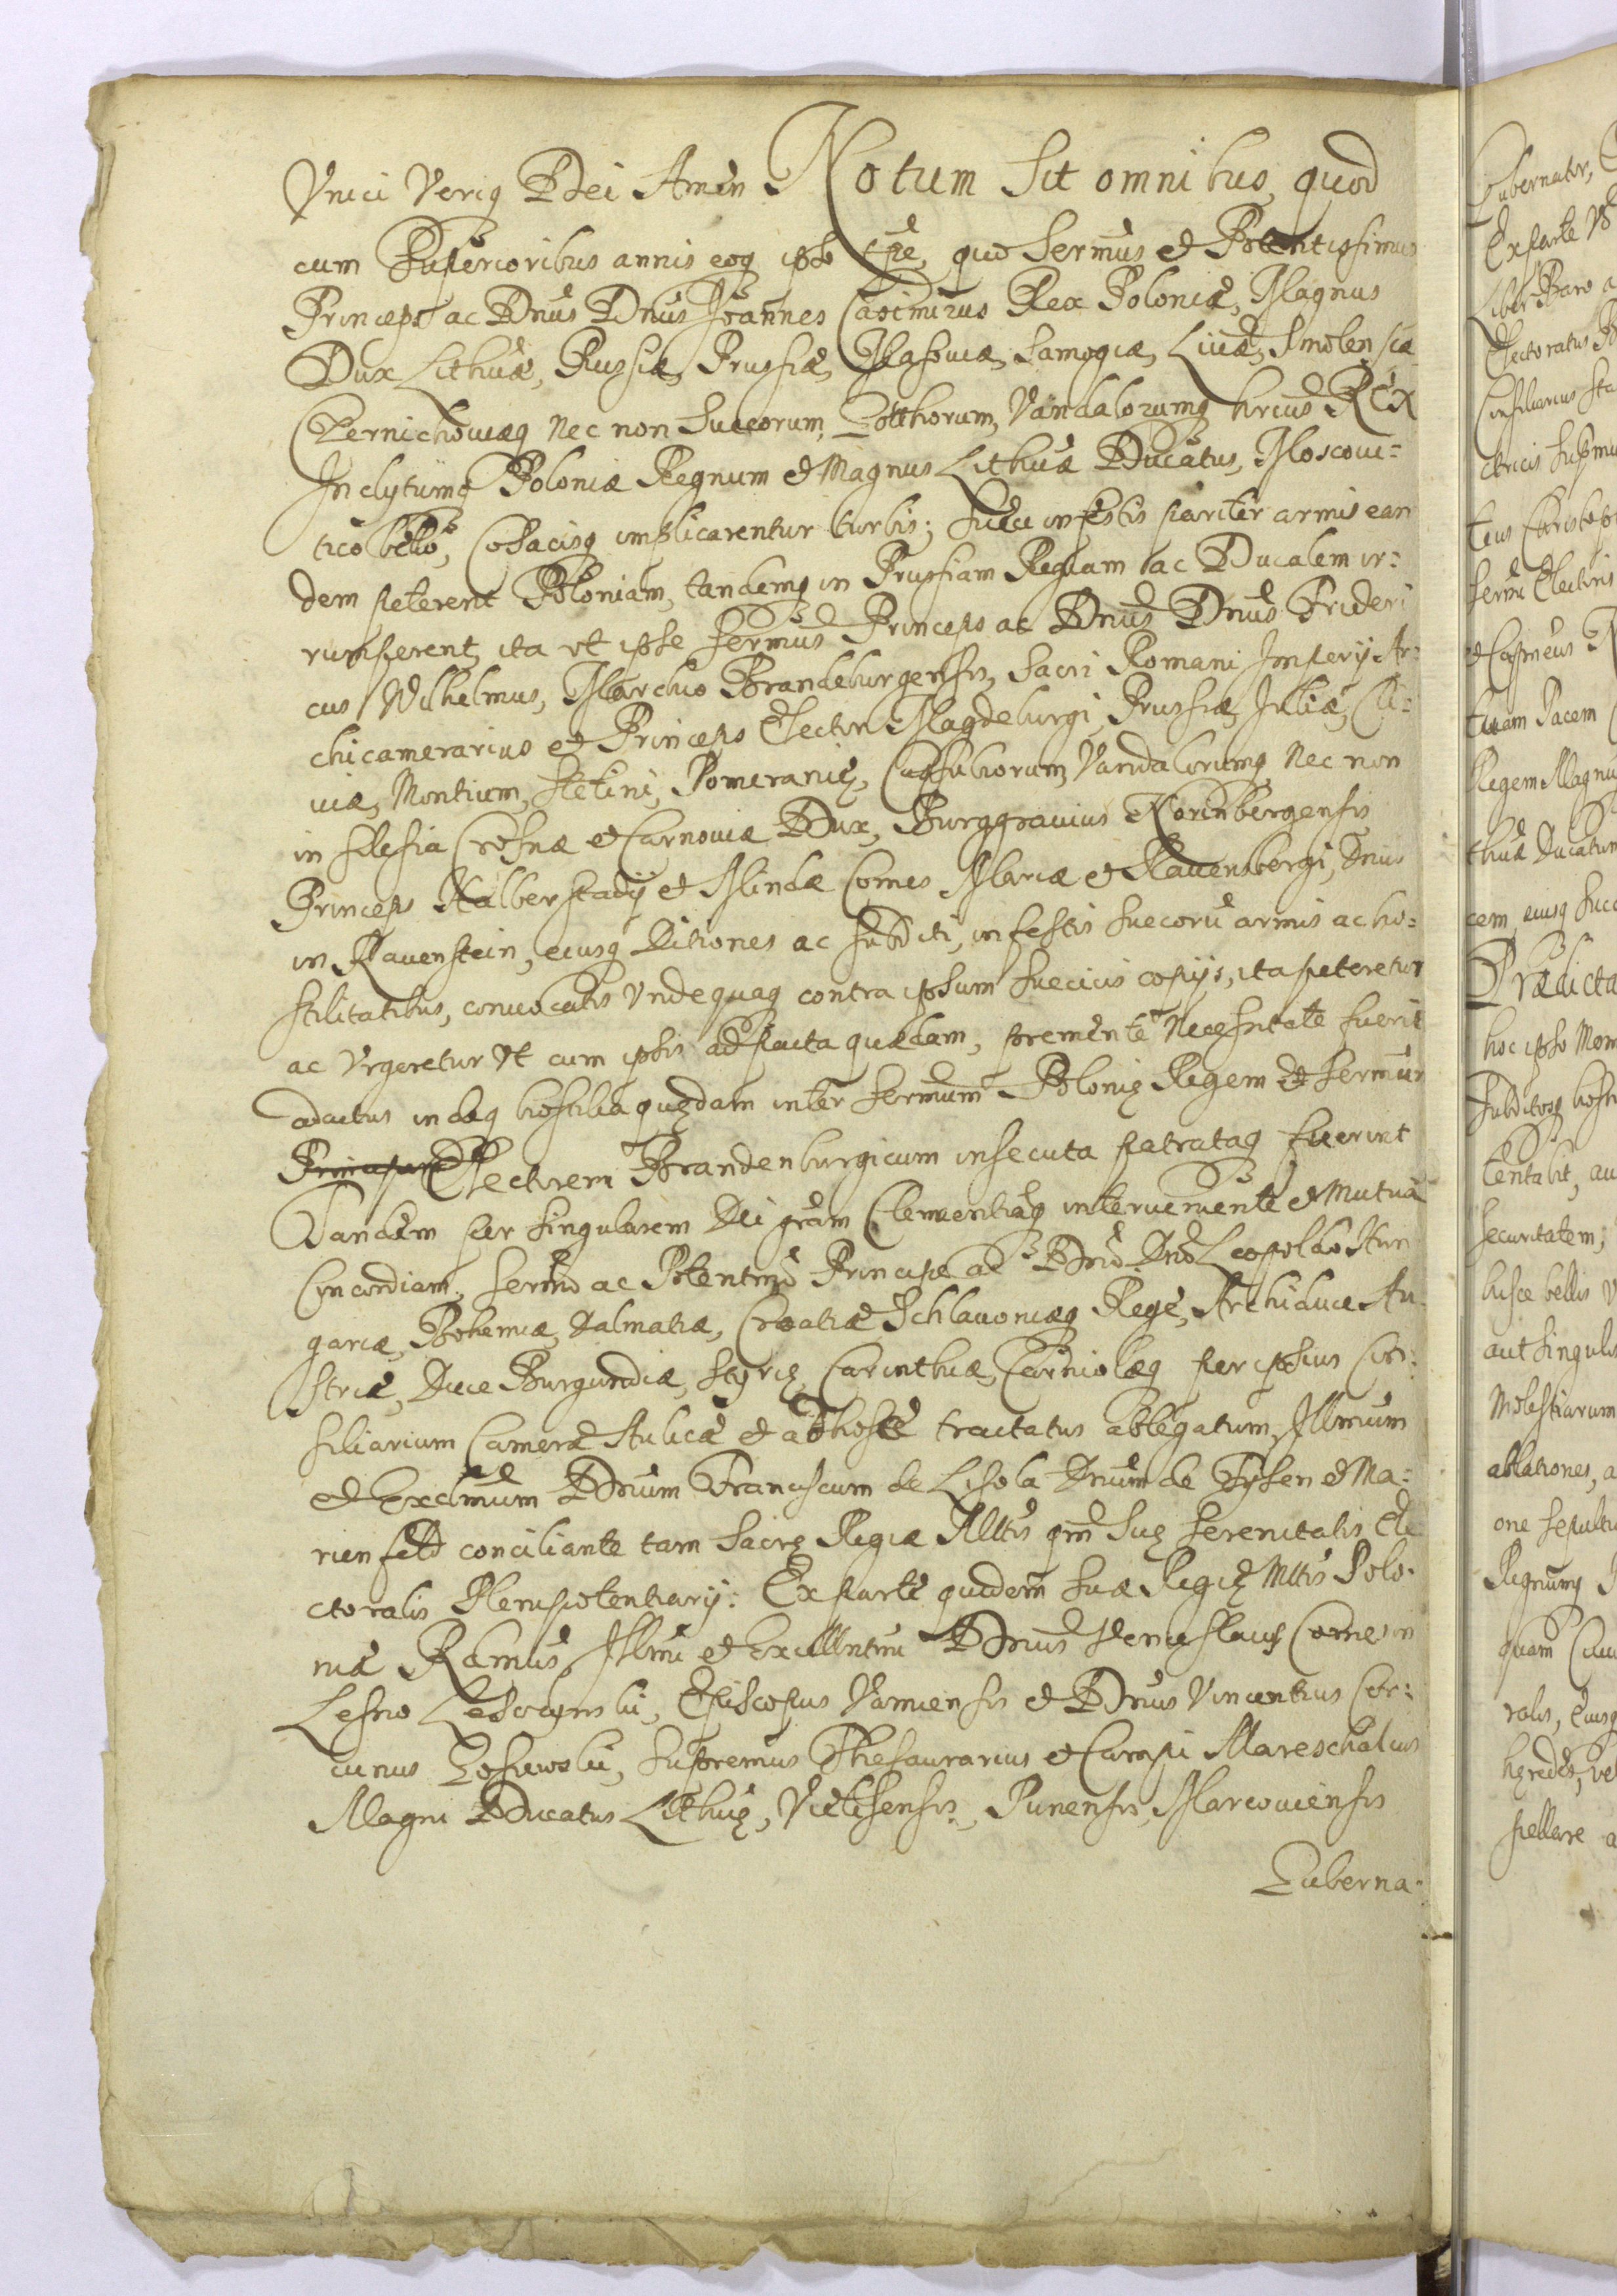 Vnici Veriq Dei Amen Notum Sit omnibus, quod
cum Superioribus annis eoq ipso tpe, quo Sermus et Potentissimus
Princeps ac Dnus Dnus Joannes Casimirus Rex Poloniæ, Magnus
Dux Lithuæ, Russiæ, Prussiæ, Masoviæ, Samogiæ, Livæ, Smolensciæ
Czernichoviæq Nec non Suecorum, Gotthorum, Vandalorumq hrius REX
Inclytumq Poloniæ Regnum et Magnus Lithuæ Ducatus, Moscovi=
tico bello, Cosacisq implicarentur turbis; Sueci infestis pariter armis ean
dem peterent Poloniam, tandemq in Prussiam Regiam ac Ducalem ir=
rumperent, ita vt ipse Sermus Princeps ac Dnus Dnus Frideri
cus Wilhelmus, Marchio Brandeburgensis, Sacri Romani Imperij Ar=
chicamerarius et Princeps Elector Magdeburgi, Prussiæ, Juliæ, Cli=
uiæ, Montium, Stetini, Pomeranię, Cassubiorum, Vandalorumq, Nec non
in Silesia Crosnæ et Carnoviæ Dux, Burggravius Norinbergensis
Princeps Halberstadij et Mindæ Comes Marcæ et Ravensbergi, Dnus
in Ravenstein, eiusq Ditiones ac subditi, infestis Suecorũ armis ac ho=
stilitatibus, convocatis Vndequaq contra ipsum Suecicis copijs, ita peteretur
ac Vrgeretur Vt cum ipsis ad pacta quædam, premente Necessitate fuerit
adactus indeq hostilia quędam inter Sermum Polonię Regem et Sermum
Principem Electorem Brandenburgicum insecuta patrataq fuerint
Tandem per Singularem Dei gram Clementiaq interveniente et Mutuã
Concordiam, Sermo ac Potentmo Principe ac Dno Dno Leopoldo Hun
gariæ, Bohemiæ, Dalmatiæ, Croatiæ Schlavoniæq Rege, Archiduce Au=
striæ, Duce Burgundiæ, Styrię, Carinthiæ, Carniolæq per ipsius Con=
siliarium Cameræ Aulicæ et ad hosce tractatus ablegatum, Illmum
et Exclmum Dnum Franciscum de Lisola Dnum de Tysen et Ma=
rienfeld conciliante tam Sacrę Regiæ Mttis qm Suę Serenitatis Ele
ctoralis Plenipotentiarij: Ex parte quidem Suæ Regię Mttis Polo=
niæ Rdmus, Illmi et Excellntmi Dnus Venceslaus Comes in
Lesno Lesczynski, Episcopus Varmiensis et Dnus Vincentius Cor=
uinus Gosiewski, Supremus Thesaurarius et Campi Mareschalcus
Magni Ducatus Lithuę, Vielisensis, Punensis, Marcoviensis
Guberna=
Gubernator,
Ex parte
Liber Baro a
Electoratus
Consiliarius
ctricis
teus Christoph
Sermi Electoris
tuam Pacem
Regem Magnu
thuæ Ducatum
cem, eiusq Succ
Prædicta
hoc ipso Mom
Subditosq hosti
tentabit, au
Securitatem;
hisce bellis V
aut Singulis
Molestiarum
ablationes, a
one Sepultu
Regnumq
quam
ralis, Eiusq
hęredes, ve
pellere a